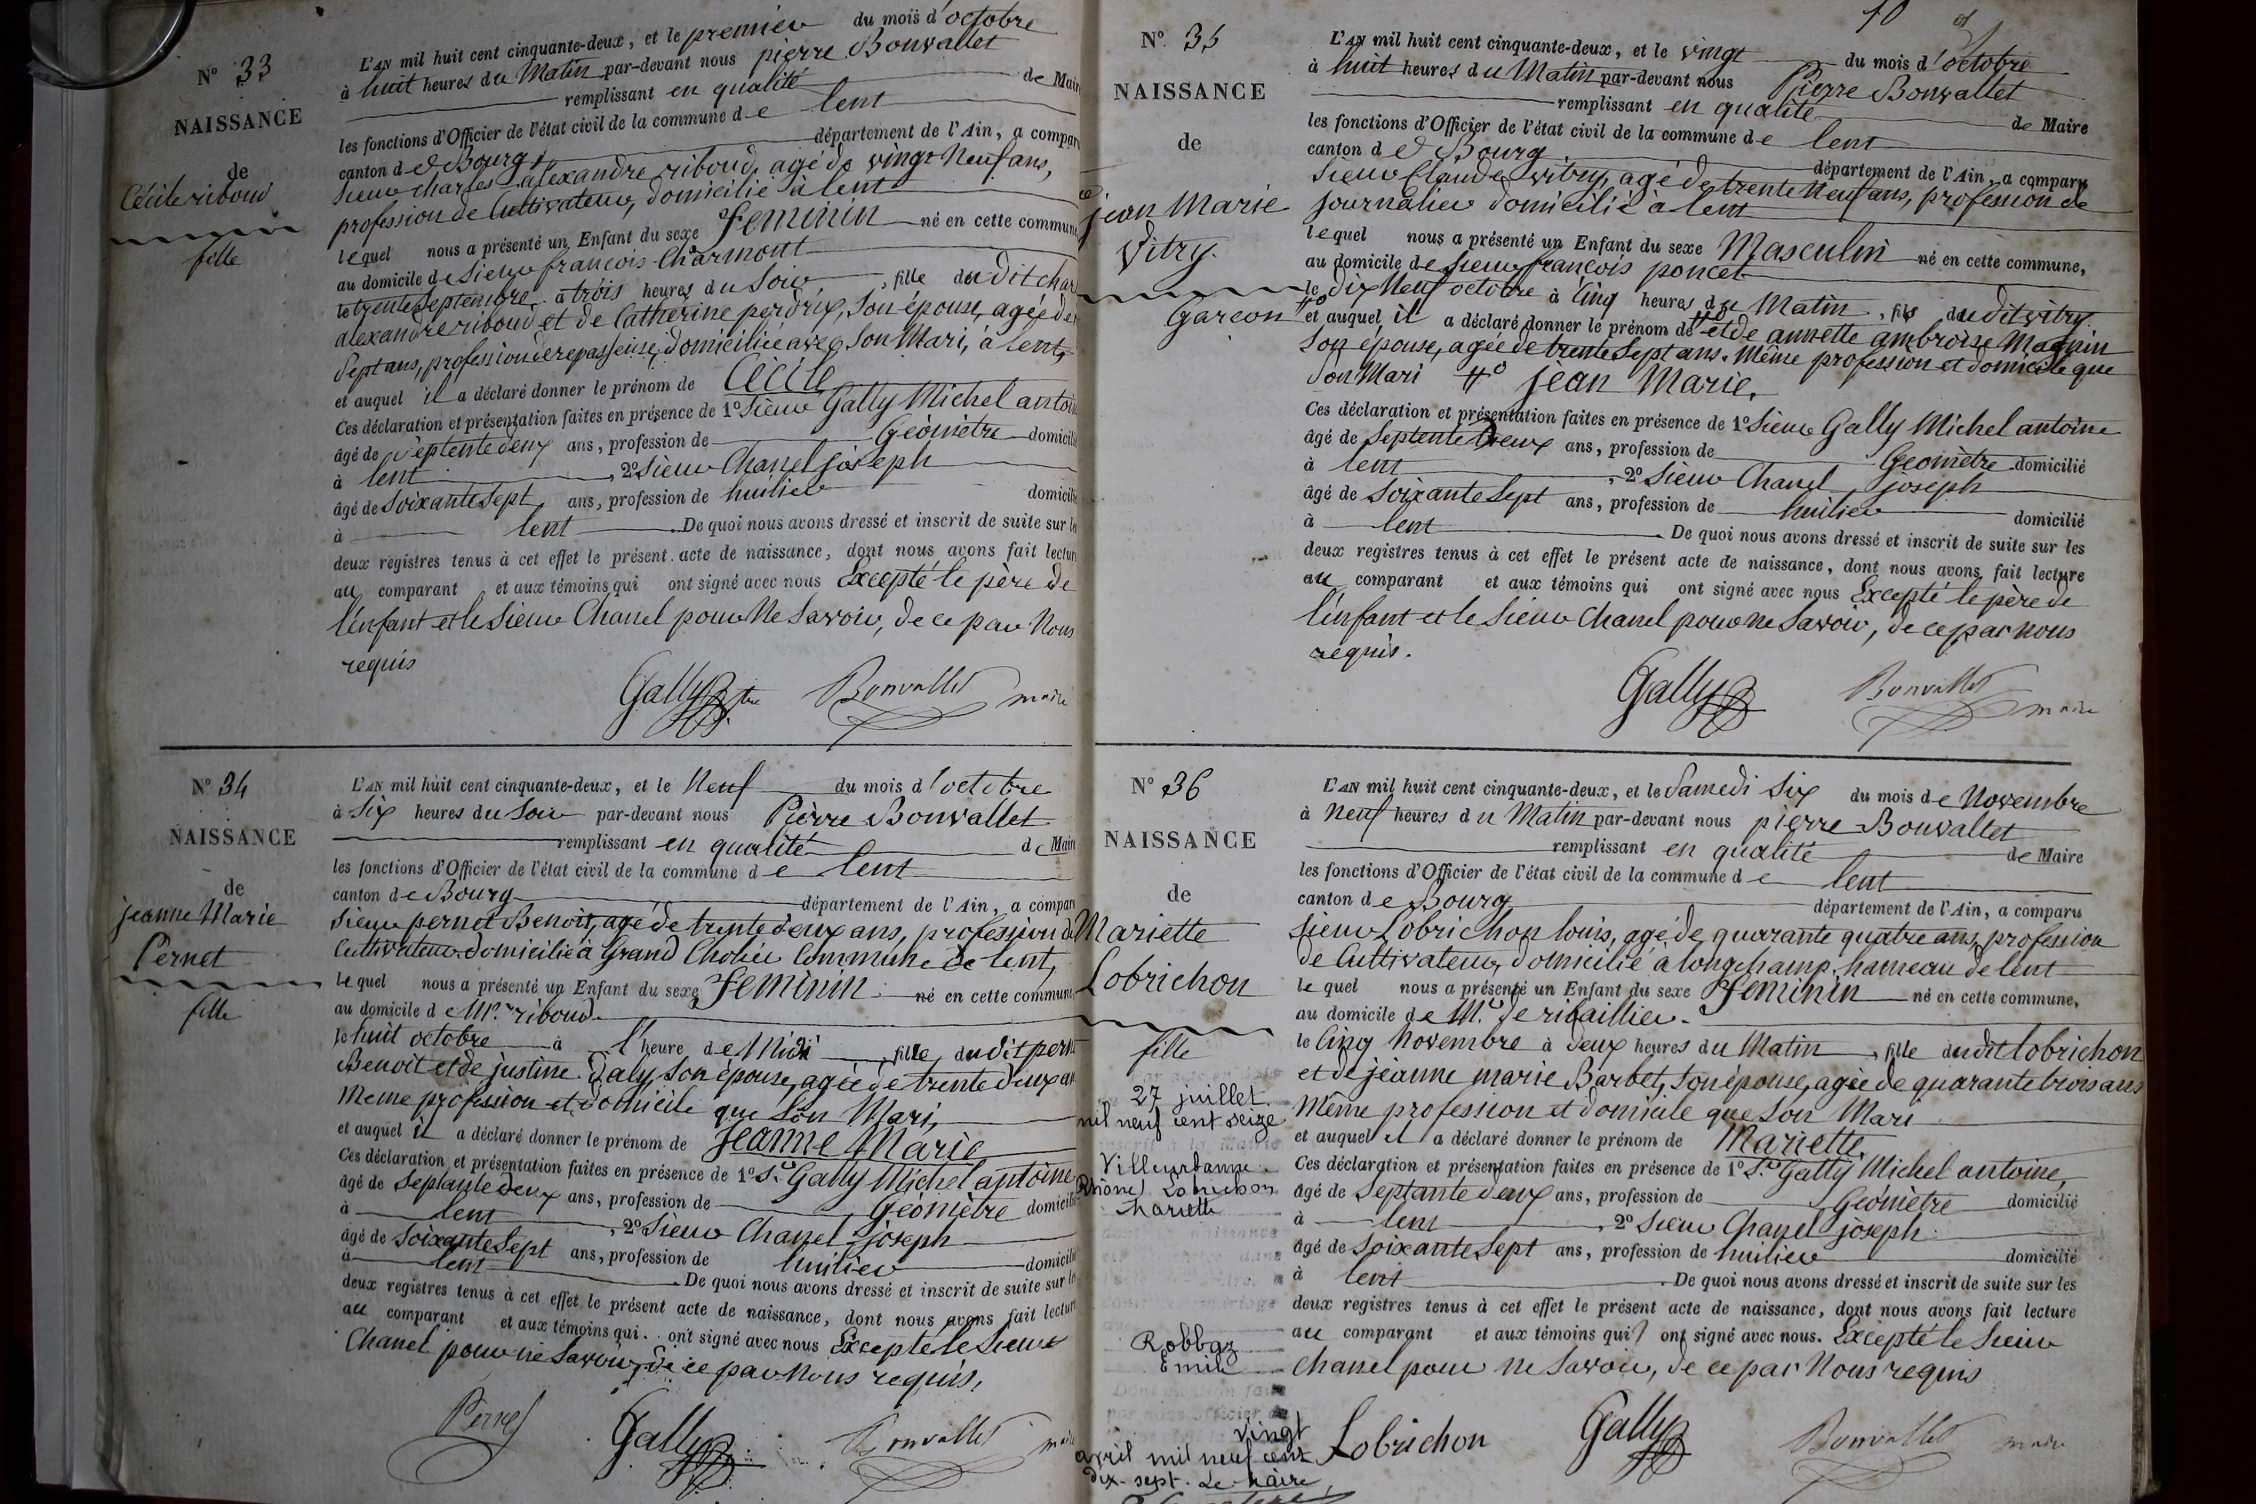 N° 33
NAISSANCE
de
Cécile riboud
fille
L'AN mil huit cent cinquante-deux, et le premier du mois d'octobre
à huit heures du Matin par-devant nous pierre Bonvallet
remplissant en qualité de Mair
les fonctions d'Officier de l'état civil de la commune de lent
canton de Bourg département de l'Ain, a compar
Sieur Charles alexandre riboud, agé de vingt Neuf ans,
profession de Cultivateur, domicilié à lent
lequel nous a présenté un Enfant du sexe Feminin né en cette commune
au domicile de Sieur francois Charmont
le trente Septembre à trois heures du Soir, fille du dit char
alexandre riboud et de Catherine perdrix, Son épouse, agée de
Sept ans, profession de repasseuse, domiciliée avec Son Mari, à lent,
et auquel il a déclaré donner le prénom de Cécile
Ces déclaration et présentation faites en présence de 1° Sieur Gally Michel antoin
âgé de Septente deux ans, profession de Géomètre domicili
à lent, 2° Sieur Chanel joseph
âgé de Soixante Sept ans, profession de huilier domicili
à lent. De quoi nous avons dressé et inscrit de suite sur le
deux registres tenus à cet effet le présent acte de naissance, dont nous avons fait lectur
au comparant et aux témoins qui ont signé avec nous Excepté le père de
l'enfant et le Sieur Chanel pour Ne Savoir, de ce par Nous
requis
Gally Bonvallet maire
N° 34
NAISSANCE
de
jeanne Marie
Pernet
fille
L'AN mil huit cent cinquante-deux, et le Neuf du mois d'octobre
à Six heures du Soir par-devant nous Pierre Bonvallet
remplissant en qualité de Mair
les fonctions d'Officier de l'état civil de la commune de lent
canton de Bourg département de l'Ain, a compar
Sieur pernet Benoit, agé de trente deux ans, profession de
Cultivateur domicilié à Grand Commune de lent,
lequel nous a présenté un Enfant du sexe Feminin né en cette commune
au domicile de Mr. riboud
le huit octobre à l'heure de Midi, fille du dit pernet
Benoit et de justine Daly, Son épouse, agée de trente deux an
Meme profession et domicile que Son Mari,
et auquel il a déclaré donner le prénom de Jeanne Marie
Ces déclaration et présentation faites en présence de 1° Sr Gally Michel antoine
âgé de Septante deux ans, profession de Géomètre domicilié
à lent, 2° Sieur Chanel joseph
âgé de Soixante Sept ans, profession de huilier domicilié
à lent. De quoi nous avons dressé et inscrit de suite sur le
deux registres tenus à cet effet le présent acte de naissance, dont nous avons fait lectur
au comparant et aux témoins qui ont signé avec nous Excepté le Sieur
Chanel pour ne Savoir, de ce par Nous requis,
Pernet Gally Bonvallet maire
10
N° 35
NAISSANCE
de
jean Marie
Vitry.
Garcon
L'AN mil huit cent cinquante-deux, et le vingt du mois d'octobre
à huit heures du Matin par-devant nous Pierre Bonvallet
remplissant en qualité de Maire
les fonctions d'Officier de l'état civil de la commune de lent
canton de Bourg département de l'Ain, a comparu
Sieur Claude vitry, agé de trente Neuf ans, profession de
journalier domicilié à lent
lequel nous a présenté un Enfant du sexe Masculin né en cette commune,
au domicile de Sieur françois poncet
le dix Neuf octobre à Cinq heures du Matin, fils du dit vitry
et auquel il a déclaré donner le prénom de et de annette ambroise Magnin
Son épouse, agée de trente Sept ans. Même profession et domicile que
Son Mari jean Marie,
Ces déclaration et présentation faites en présence de 1° Sieur Gally Michel antoine
âgé de Septente Deux ans, profession de Géomètre domicilié
à lent, 2° Sieur Chanel joseph
âgé de Soixante Sept ans, profession de huilier domicilié
à lent. De quoi nous avons dressé et inscrit de suite sur les
deux registres tenus à cet effet le présent acte de naissance, dont nous avons fait lecture
au comparant et aux témoins qui ont signé avec nous Excepté le père de
l'enfant et le Sieur Chanel pour ne Savoir, de ce par nous
requis.
Gally Bonvallet maire
N° 36
NAISSANCE
de
Mariette
Lobrichon
fille
27 juillet
mil neuf cent seize
Villeurbanne
Rhône Lobrichon
Mariette
Robbaz
Emile
vingt
avril mil neuf cent
dix-sept. Le Maire,
L'AN mil huit cent cinquante-deux, et le Samedi Six du mois de Novembre
à Neuf heures du Matin par-devant nous pierre Bonvallet
remplissant en qualité de Maire
les fonctions d'Officier de l'état civil de la commune de lent
canton de Bourg département de l'Ain, a comparu
Sieur Lobrichon louis, agé de quarante quatre ans, profession
de Cultivateur, domicilié à longchamp, hameau de lent
lequel nous a présenté un Enfant du sexe Feminin né en cette commune,
au domicile de Mr. de ribaillier
le Cinq Novembre à deux heures du Matin, fille du dit Lobrichon
et de jeanne marie Barbet, Son épouse, agée de quarante trois ans
Même profession et domicile que Son Mari
et auquel il a déclaré donner le prénom de Mariette,
Ces déclaration et présentation faites en présence de 1° Sr Gally Michel antoine,
âgé de Septante deux ans, profession de Géomètre domicilié
à lent, 2° Sieur Chanel joseph
âgé de Soixante Sept ans, profession de huilier domicilié
à lent. De quoi nous avons dressé et inscrit de suite sur les
deux registres tenus à cet effet le présent acte de naissance, dont nous avons fait lecture
au comparant et aux témoins qui ont signé avec nous. Excepté le Sieur
Chanel pour Ne Savoir, de ce par Nous requis
Lobrichon Gally Bonvallet maire